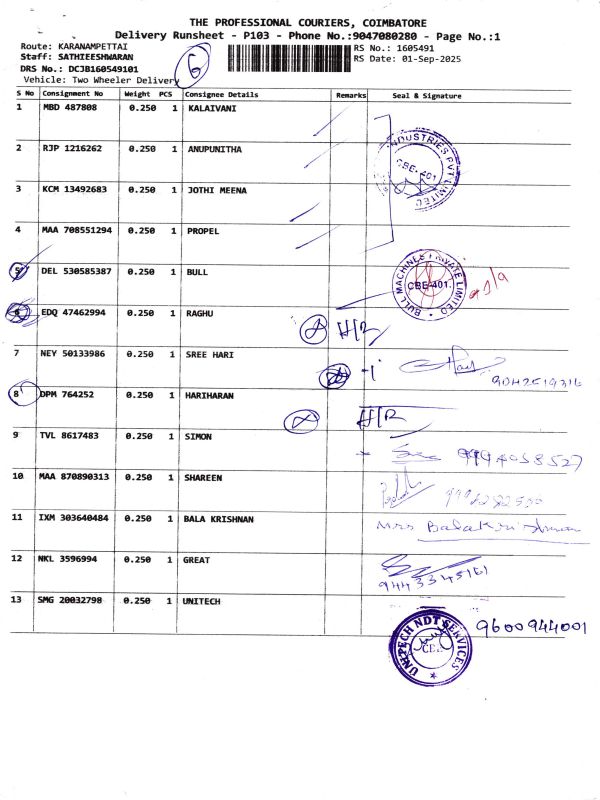 THE PROFESSIONAL COURIERS, COIMBATORE
Delivery Runsheet - P103 - Phone No.:9047080280 - Page No.:1
Route: KARANAMPETTAI
Staff: SATHIEESHWARAN
DRS No.: DCJB160549101
Vehicle: Two Wheeler Delivery
6
RS No.: 1605491
RS Date: 01-Sep-2025
S No Consignment No Weight PCS Consignee Details Remarks Seal & Signature
1 MBD 487808 0.250 1 KALAIVANI
2 RJP 1216262 0.250 1 ANUPUNITHA
INDUSTRIES PVT LIMITED
CBE-401
3 KCM 13492683 0.250 1 JOTHI MEENA
4 MAA 708551294 0.250 1 PROPEL
5 DEL 530585387 0.250 1 BULL
BULL MACHINES PRIVATE LIMITED
CBE-401.
6 EDQ 47462994 0.250 1 RAGHU
H/R
7 NEY 50133986 0.250 1 SREE HARI
8 DPM 764252 0.250 1 HARIHARAN
H/R
9 TVL 8617483 0.250 1 SIMON
9994058527
10 MAA 870890313 0.250 1 SHAREEN
11 IXM 303640484 0.250 1 BALA KRISHNAN
Mrs Balakrishnan
12 NKL 3596994 0.250 1 GREAT
9443345161
13 SMG 20032798 0.250 1 UNITECH
9600944001
UNITECH NDT SERVICES